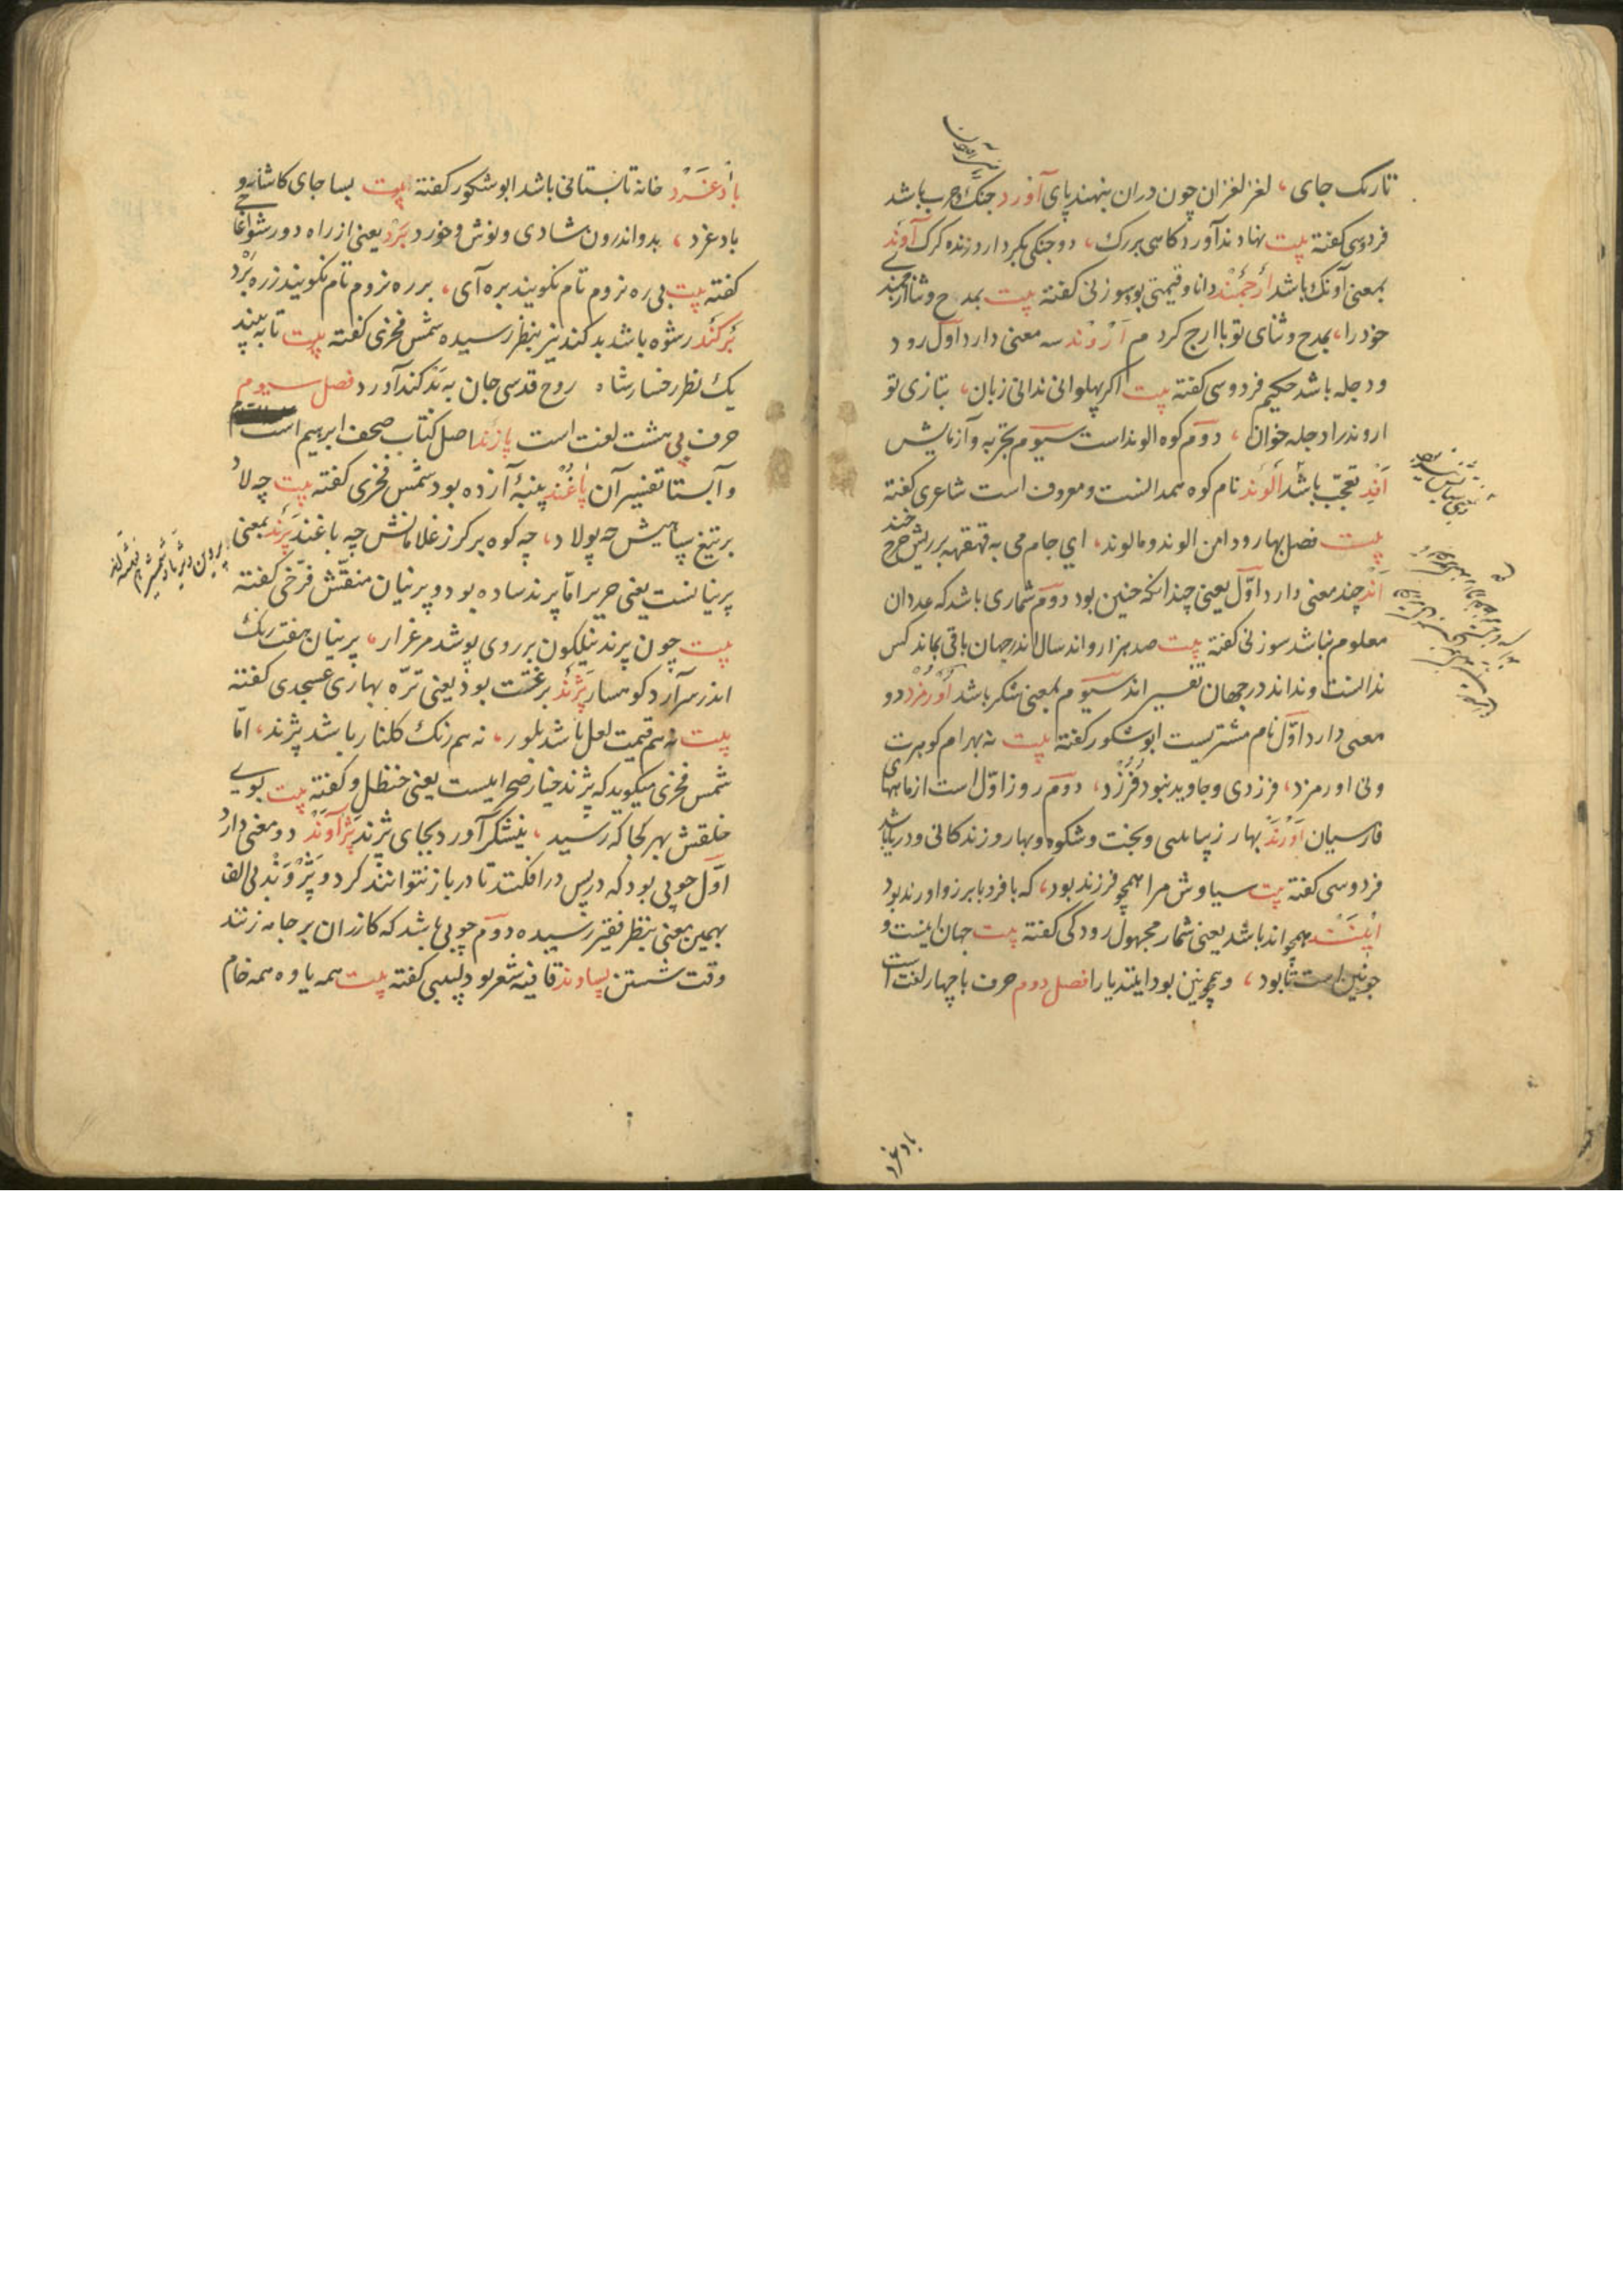 تاریک جای، لغز لغزان چون دران بنهند پای آورد جنک و حرب باشد
فردوسی کفته بیت نهادند آوردکاهی بزرک، دو جنکی بکردار درنده کرک آوند
بمعنی آونک باشد ارجمند دانا و قیمتی بود سوزنی کفته بیت بمدح و ثنا ارجمند
خود را، بمدح و ثنای تو با ارج کردم اروند سه معنی دارد اول رود
ودجله باشد حکیم فردوسی کفته بیت اکر پهلوانی ندانی زبان، بتازی تو
اروند را دجله خوان، دوم کوه الوند است سیوم تجربه و آزمایش
اند تعجب باشد الوند نام کوه همدانست و معروف است شاعری کفته
بیت فصل بهار و دامن الوند و مالوند، ای جام می به قهقهه بر ریش چرخ خند
اند چند معنی دارد اول یعنی چندانکه چنین بود دوم شماری باشد که عدد ان
معلوم نباشد سوزنی کفته بیت صد هزار و اند سال اندر جهان باقی بماند کس
ندانست و نداند در جهان تفسیر اند سیوم بمعنی شکر باشد اورمزد دو
معنی دارد اول نام مشتریست ابوشکور کفته بیت نه بهرام کوهرت
ونی اورمزد، فرزدی و جاوید نبود فرزد، دوم روز اول است از ماههای
فارسیان اورند بهار زیبایی و بخت و شکوه و بهار و زندکانی و دریا باشد
فردوسی کفته بیت سیاوش مرا همچو فرزند بود، که با فر و با برز و اورند بود
ایند همچو اند باشد یعنی شمار مجهول رودکی کفته بیت جهان اینست و
چونین است تا بود، و همچونین بود ایند یارا فصل دوم حرف با چهار لغت است
بادغرد
بادغرد خانه تابستانی باشد ابوشکور کفته بیت بسا جای کاشانه و
بادغرد، بدو اندرون شادی و نوش و خورد برد یعنی از راه دور شو اغاجی
کفته بیت بی ره نروم تام نکویند بره آی، بر ره نروم تام نکویند زره برد
برکند رشوه باشد بدکند نیز بنظر رسیده شمس فخری کفته بیت تا به بیند
یک نظر رخسار شاه روح قدسی جان به بدکند آورد فصل سیوم
حرف پی هشت لغت است پازند اصل کتاب صحف ابرهیم است
و آبستا تفسیر آن پاغند پنبهٔ آزده بود شمس فخری کفته بیت چه لاد
بر تیغ سپاهیش چه پولاد، چه کوه بر کرز غلامانش چه پاغند پرند بمعنی
پرنیانست یعنی حریر اما پرند ساده بود و پرنیان منقش فرخی کفته
بیت چون پرند نیلکون بر روی پوشد مرغزار، پرنیان هفت رنک
اندر سر آرد کوهسار پژند برغست بود یعنی تره بهاری عسجدی کفته
بیت نه هم قیمت لعل باشد بلور، نه هم رنک کلنار باشد پژند، اما
شمس فخری میکوید که پژند خیار صحراییست یعنی حنظل و کفته بیت بوی
خلقش بهر کجا که رسید، نیشکر آورد بجای پژند پژاوند دو معنی دارد
اول چوبی بود که در پس در افکنند تا در باز نتوانند کرد و پژوند بی الف
بهمین معنی بنظر فقیر رسیده دوم چوبی باشد که کازران بر جامه زنند
وقت شستن پساوند قافیه شعر بود لبیبی کفته بیت همه یاوه همه خام